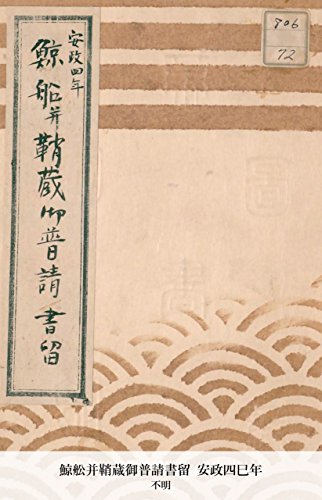 安政四年
鯨船并鞘蔵御普請書留
806
72
鯨舩并鞘蔵御普請書留 安政四巳年
不明